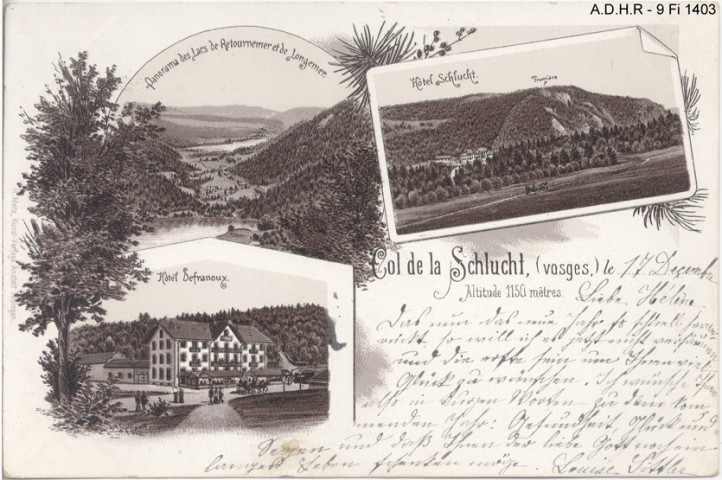 A.D.H.R - 9 Fi 1403
Panorama des Lacs de Retournemer et de Longemer.
Hôtel Schlucht.
Frontière
Hôtel Defranoux.
Col de la Schlucht, (vosges,) le 17 Decembre
Altitude 1150 mètres.
Liebe Helene
Das nun das neue Jahr so schnell
rückt so will ich es jetzt nicht
und die erste sein um Ihnen viel
Glück zu wünschen. Ich wünsche Ihnen
also in kurzen Worten zu dem kom
menden Jahr: Gesundheit Glück und
Segen und daß Ihnen der liebe Gott noch ein
langes Leben schenken möge. Louise